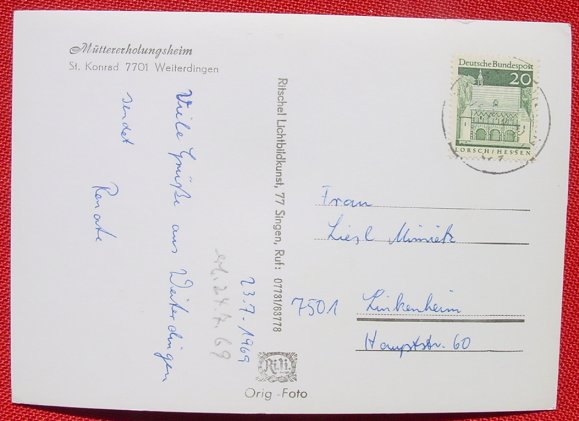 Müttererholungsheim
St. Konrad 7701 Weiterdingen
Viele Grüße aus Weiterdingen
sendet Renate
23.7.1969
24.7.69
Ritschel Lichtbildkunst, 77 Singen, Ruf: 07731/63778
Ri.Li.
Orig.-Foto
Deutsche Bundespost
20
LORSCH/HESSEN
Frau
Liesl
7501 Linkenheim
Hauptstr. 60